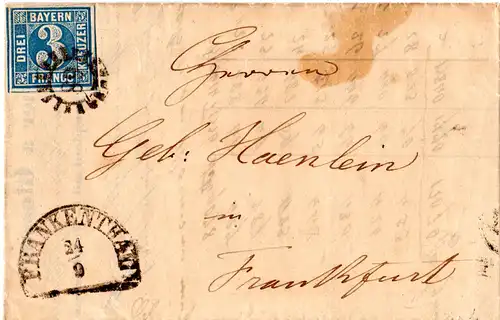 BAYERN
DREI 3 KREUZER
FRANCO
Herren
Geb: Haenlein
in
Frankfurt
FRANKENTHAL
24
9